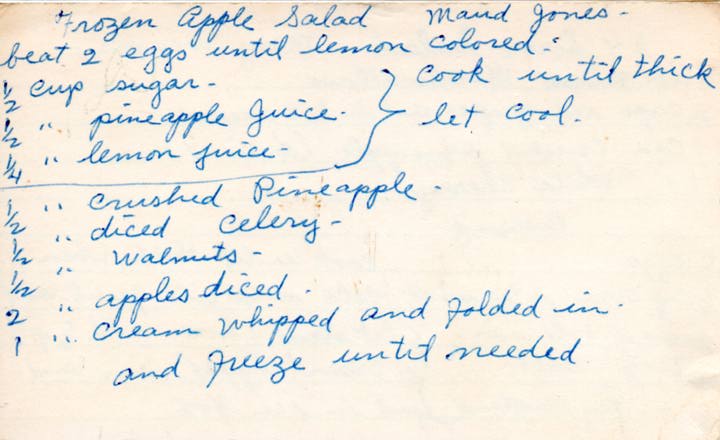 Frozen Apple Salad Maud Jones-
beat 2 eggs until lemon colored-
1/2 cup sugar- } cook until thick
1/2 " pineapple juice- let cool.
1/4 " lemon juice-
1/2 " crushed Pineapple-
1/2 " diced celery-
1/2 " walnuts-
2 " apples diced.
1 " cream whipped and folded in-
and freeze until needed